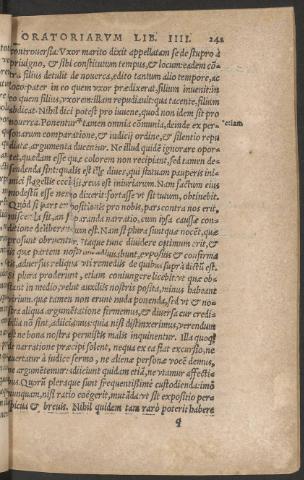 ORATORIARVM LIB. IIII. 242
controuersia: Vxor marito dixit appellatam se de stupro à
priuigno, & sibi constitutum tempus, & locum: eadem cō-
tra filius detulit de nouerca, edito tantum alio tempore, ac
loco: pater in eo quem vxor prædixerat, filium inuenit: in
eo quem filius, vxorem: illam repudiauit: qua tacente, filium
abdicat. Nihil dici potest pro iuuene, quod non idem sit pro
nouerca. Ponentur tamen omnia cōmunia, deinde ex per-
etiam
sonarum comparatione, & indicij ordine, & silentio repu
diatæ, argumenta ducentur. Ne illud quidē ignorare opor-
tet, quædam esse quæ colorem non recipiant, sed tamen de-
fendenda sint: qualis est ille diues, qui statuam pauperis ini-
mici flagellis cecidit, reus est iniuriarum. Nam factum eius
modestū esse nemo dixerit: fortasse vt sit tutum, obtinebit.
Quòd si pars expositionis pro nobis, pars contra nos erit,
sit, an paranda narratio, cum ipsa caussæ con-
ditione deliberandum est. Nam si plura sunt quæ nocēt, quæ
prosunt obruentur. Itaque tunc diuidere optimum erit, &
iis quæ partem nostram adiuuabunt, expositis & confirma
tis, aduersus reliqua vti remediis de quibus suprà dictū est.
Si plura proderunt, etiam coniungere licebit: vt quæ ob-
stant in medio, velut auxiliis nostris posita, minus habeant
virium. quæ tamen non erunt nuda ponenda, sed vt & no-
stra aliqua argumētatione firmemus, & diuersa cur credi-
bilia nō sint, adiiciamus: quia nisi distinxerimus, verendum
est ne bona nostra permistis malis inquinentur. Illa quoq;
de narratione præcipi solent, nequa ex ea fiat excursio, ne
auertatur à iudice sermo, ne alienæ personæ vocē demus,
ne argumētemur: adiiciunt quidam etiā, ne vtamur affecti-
bus. Quorū pleraque sunt frequentissimè custodienda: imò
nunquam, nisi ratio coëgerit, mutāda: vt sit expositio pers
picua & breuis. Nihil quidem tam rarò poterit habere
q